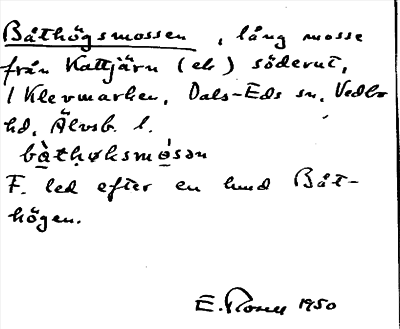 Båthögsmossen, lång mosse
från Kattjärn (ek) söderut,
i Klevmarken, Dals-Eds sn, Vedbo
hd, Älvsb. l.
bàthøksmósən
F. led efter en hmd Båt-
högen.
E. Rosell 1950